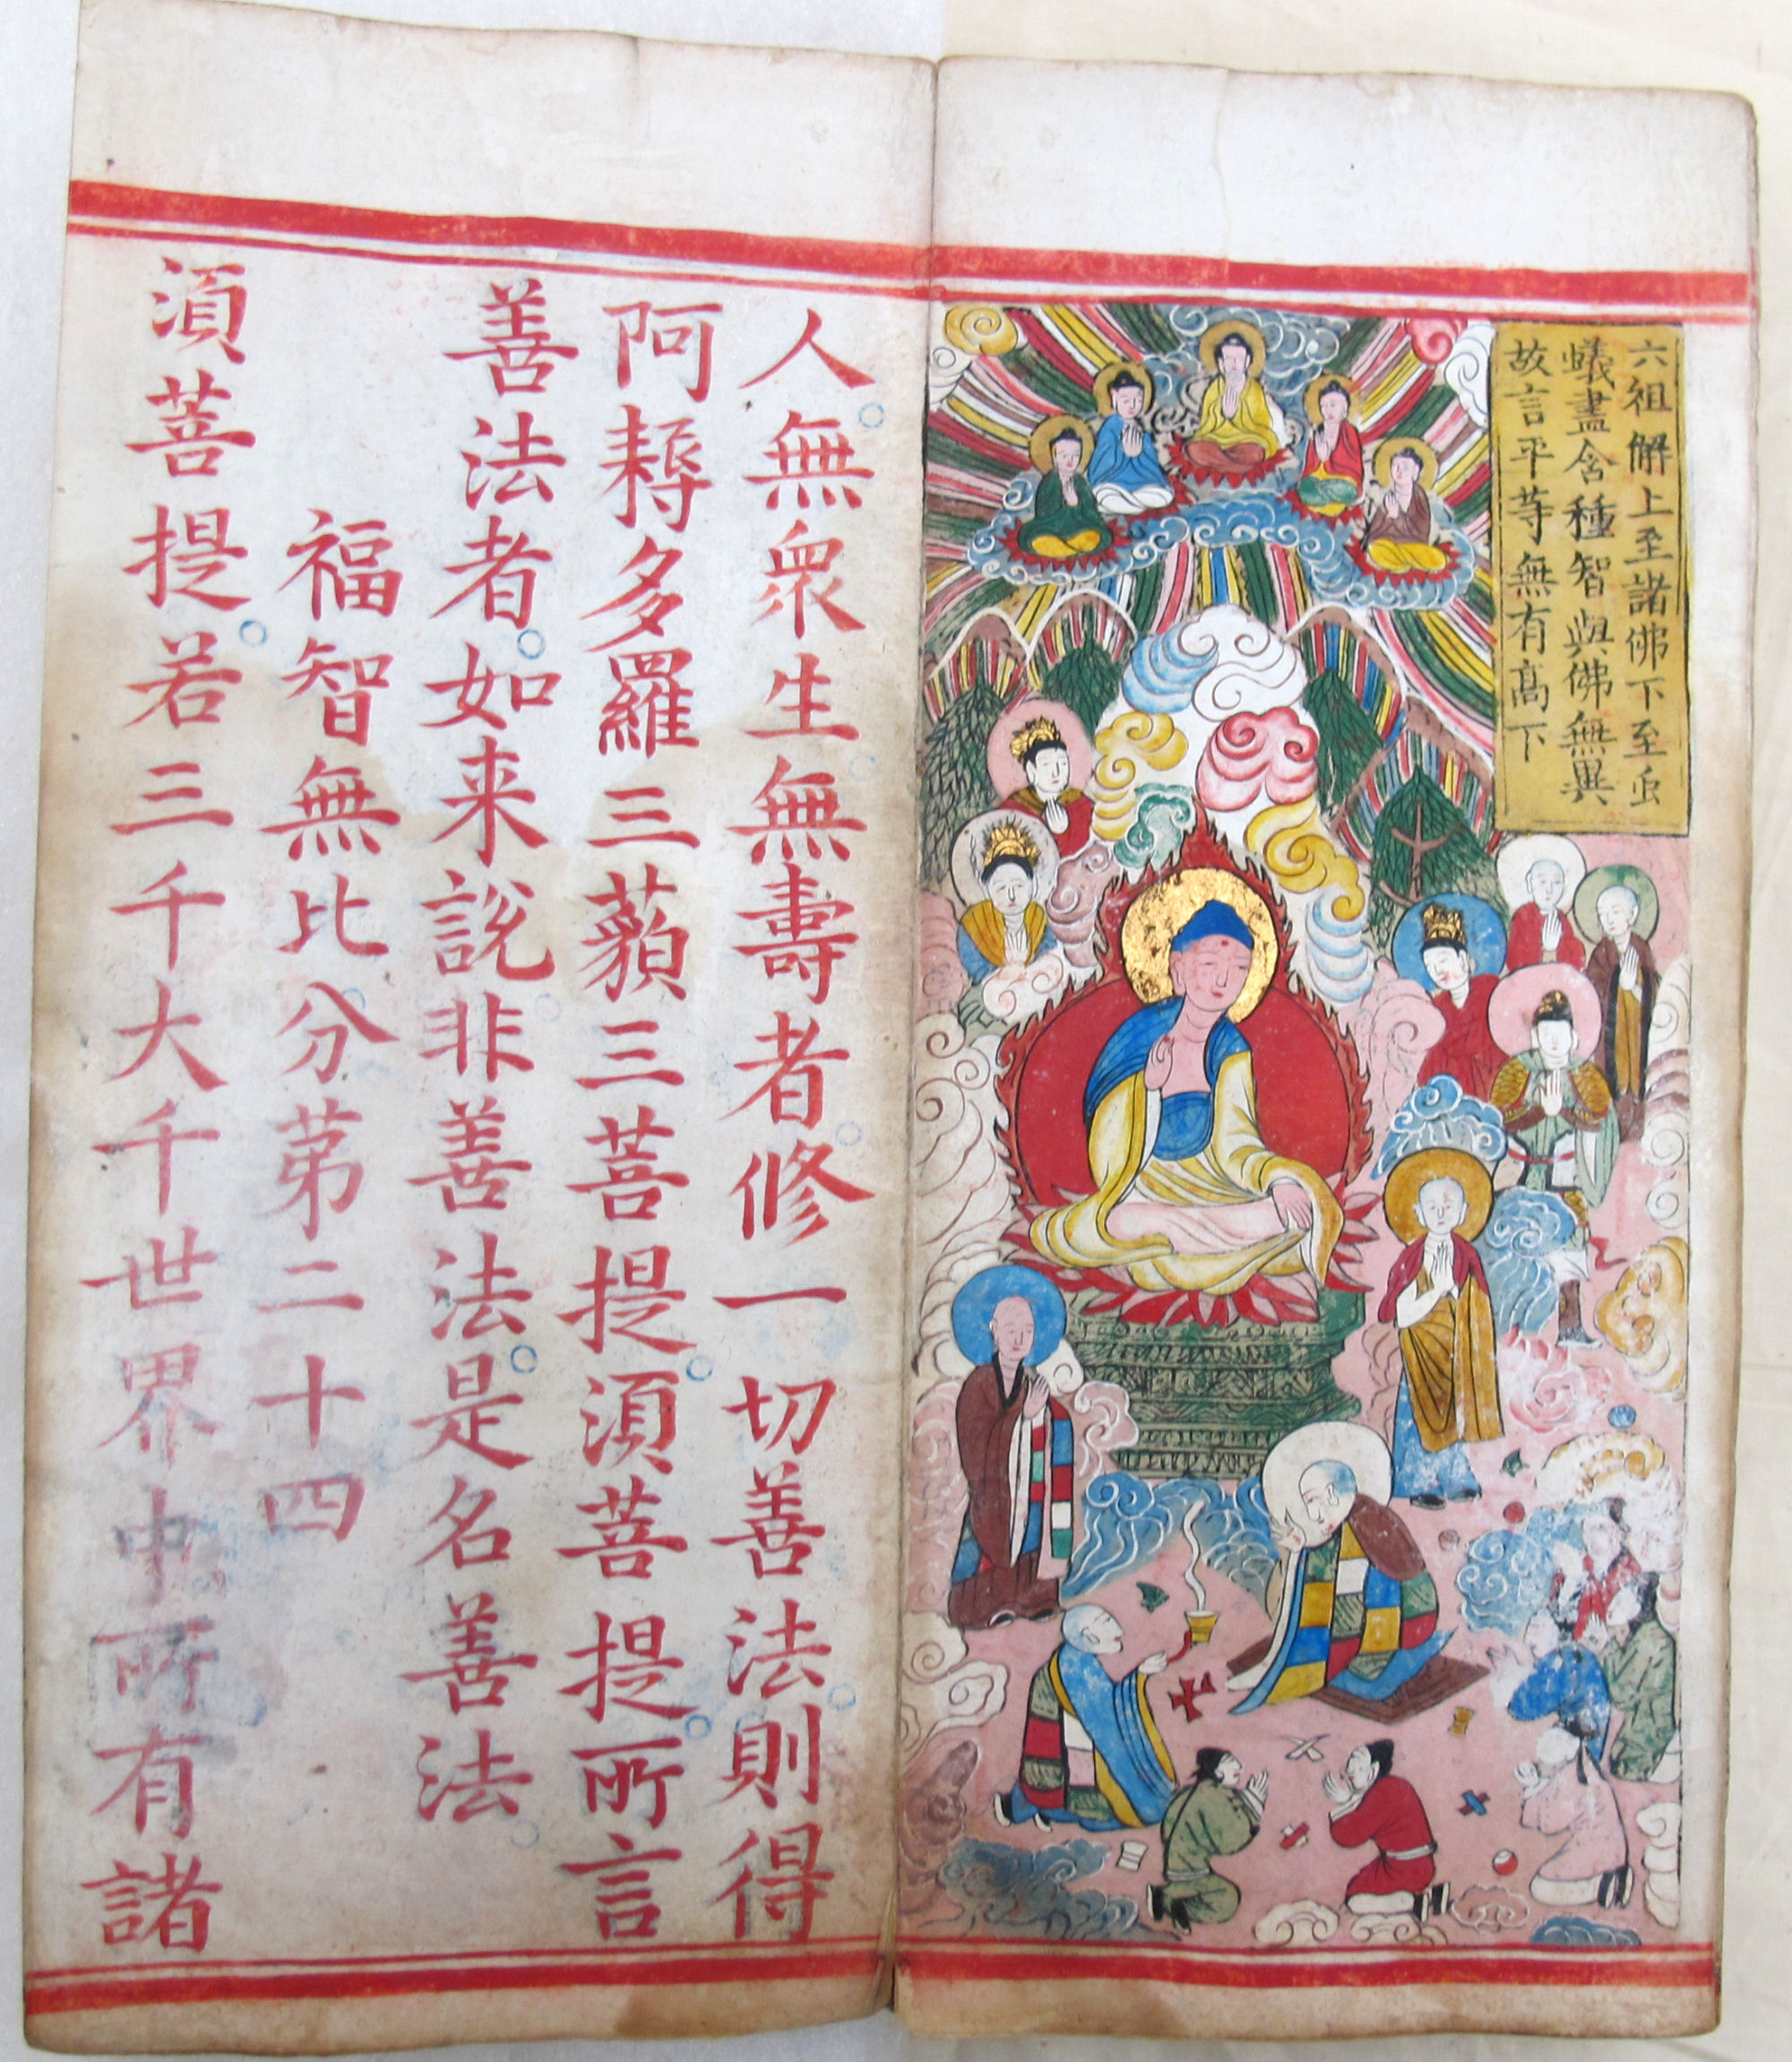 六祖解上至諸佛下至虫
蟻盡含種智與佛無異
故言平等無有高下
人無眾生無壽者修一切善法則得
阿耨多羅三藐三菩提須菩提所言
善法者如来說非善法是名善法
福智無比分第二十四
須菩提若三千大千世界中所有諸